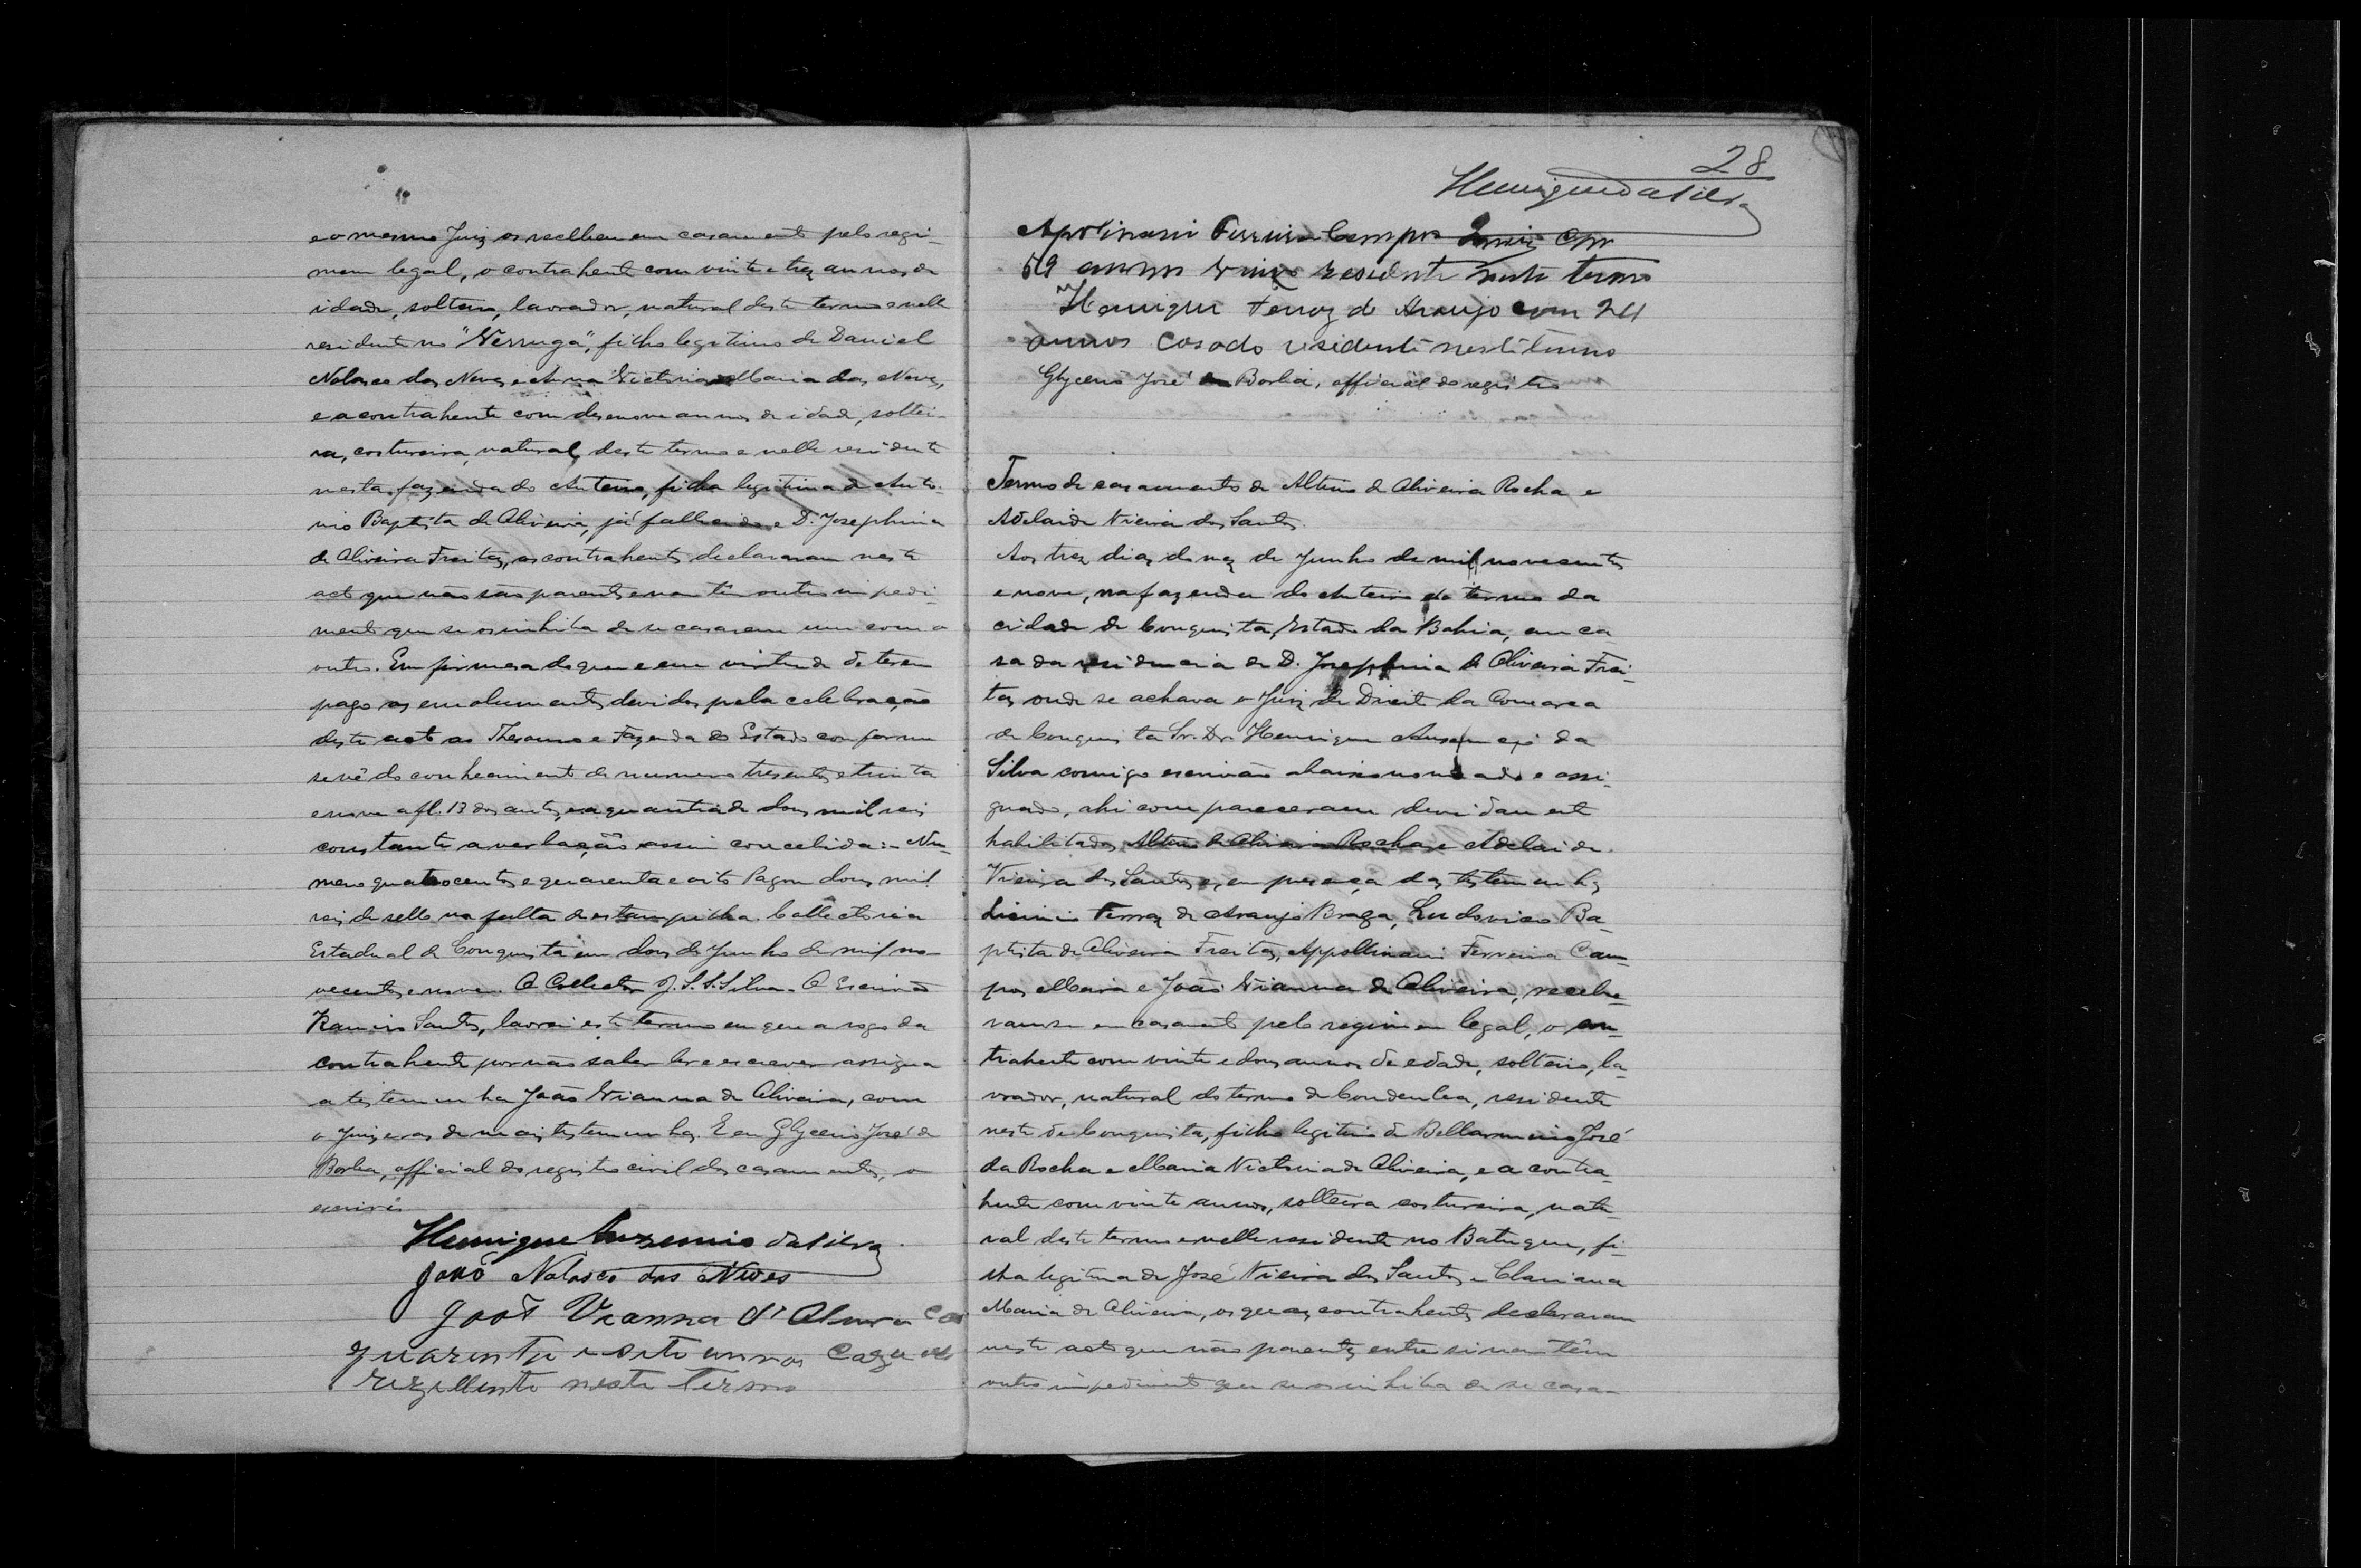 e o mesmo Juiz os recebeu em casamento pelo regi-
mem legal, o contrahente com vinte e tres annos de
idade, solteiro, lavrador, natural deste termo e nelle
residente no "Verruga", filho legitimo de Daniel
Nolasco das Neves e Anna Victoria Maria das Neves,
e a contrahente com desenove annos de idade, soltei-
ra, costureira, natural deste termo e nelle residente
nesta fazenda do Anteiro, filha legitima de Anto-
nio Baptista de Oliveira, já fallecido e D. Josephina
de Oliveira Freitas, os contrahentes declararam neste
acto que não são parentes e nem têm outro impedi-
mento que se os inhiba de se casarem um com o
outro. Em firmesa do que e em virtude de terem
pago os emolumentos devidos pela celebração
deste acto ao Thesouro e Fazenda do Estado conforme
se vê do conhecimento de numero tresentos e trinta
e nove a fl. 13 dos autos, e a quantia de dous mil reis
constante a verbação assim concebida: - Nu-
mero quatrocentos e quarenta e oito Pagou dous mil
reis de sello na falta de estampilha. Collectoria
Estadual de Conquista em dous de Junho de mil no-
vecentos e nove. O Collector J. S. S. Silva. O Escrivão
Ramiro Santos, lavrei este termo em que a rogo da
contrahente por não saber ler e escrever assigna
a testemunha João Vianna de Oliveira, com
o Juiz e as demais testemunhas. E eu Glycerio José de
Borba, official do registro civil dos casamentos, o
escrivi
Henrique Auxencio da Silva
João Nolasco das Neves
João Vianna d' Olivera com
quarenta e oito annos Cazado
rezidente neste termo
28
Henrique da Silva
Apolinario Ferreira Campos com
59 annos residente neste termo
Henrique Ferraz de Araujo com 24
annos Casado residente neste termo
Glycerio José de Borba, official do registro
Termo de casamento de Altino de Oliveira Rocha e
Adelaide Vieira dos Santos.
Aos tres dias do mez de Junho de mil novecentos
e nove, na fazenda do Anteiro do termo da
cidade de Conquista, Estado da Bahia, em ca-
sa da residencia de D. Josephina de Oliveira Frei-
tas onde se achava o Juiz de Direito da Comarca
de Conquista Sr. Dr. Henrique Auxencio da
Silva comigo escrivão abaixo nomeado e assi-
gnado, ahi compareceram devidamente
habilitados Altino de Oliveira Rocha e Adelaide
Vieira dos Santos e, em presença das testemunhas
Licinio Ferraz de Araujo Braga, Ludovico Ba-
ptista de Oliveira Freitas, Appollinario Ferreira Cam-
pos Maria e João Vianna de Oliveira, recebe-
ram-se em casamento pelo regimem legal, o con-
trahente com vinte e dous annos de edade, solteiro, la-
vrador, natural do termo de Condeuba, residente
neste de Conquista, filho legitimo de Bellarmino José
da Rocha e Maria Victoria de Oliveira, e a contra-
hente com vinte annos, solteira costureira, natu-
ral deste termo e nelle residente no Batuque, fi-
lha legitima de José Vieira dos Santos e Clariana
Maria de Oliveira, os quaes contrahentes declararam
neste acto que não parentes entre si nem têm
outro impedimento que se os inhiba de se casa-